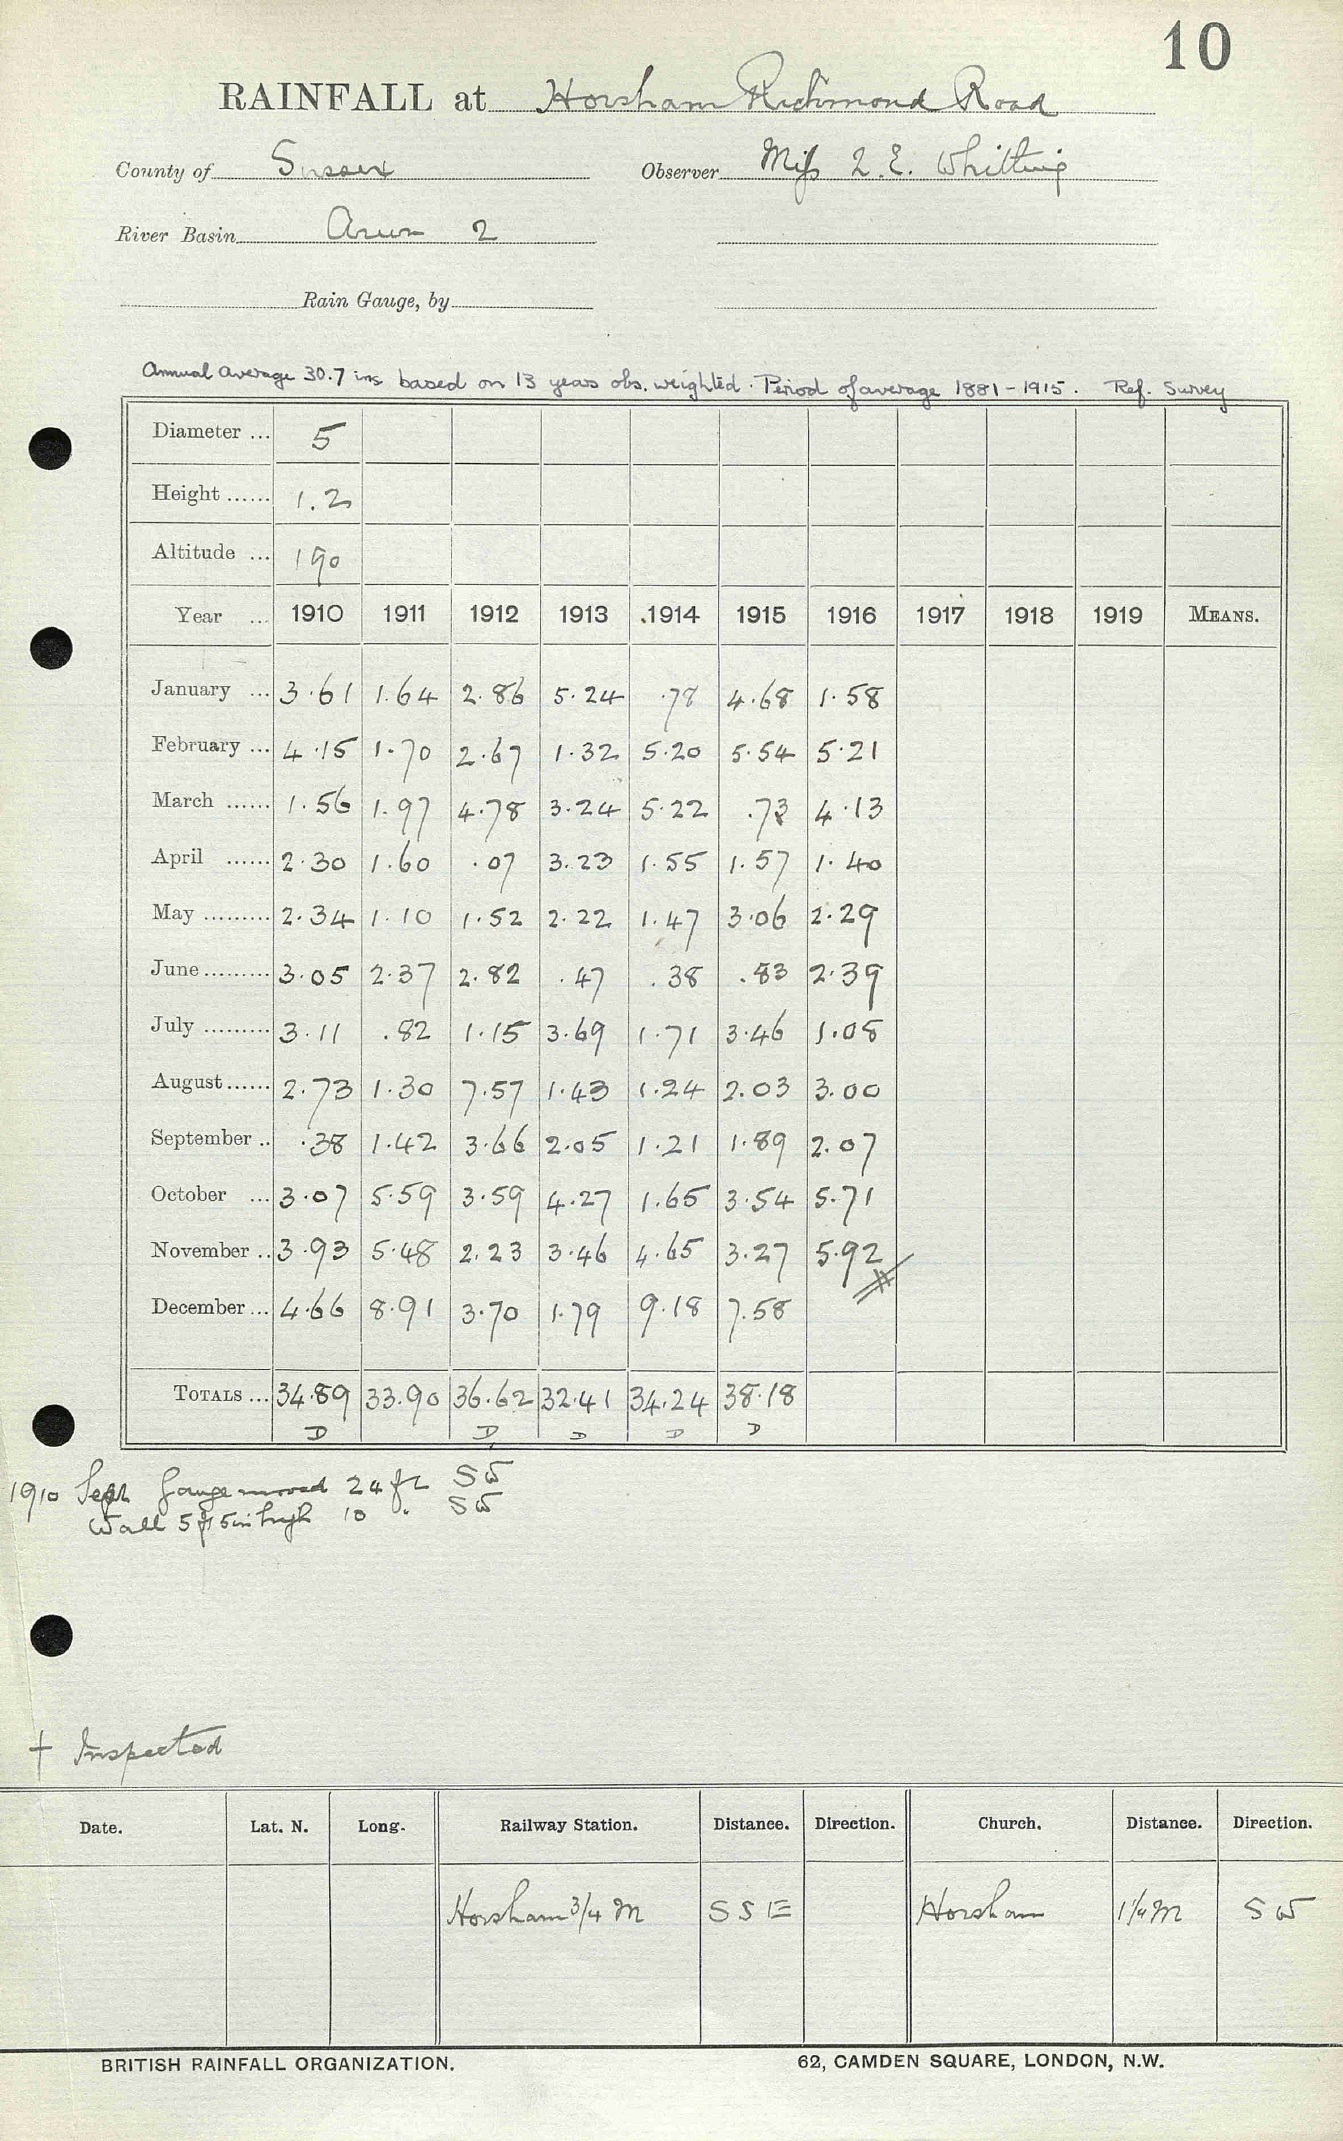 10
RAINFALL at Horsham Richmond Road
County of Sussex Observer Miss L. E. Whitting
River Basin Arun 2
Rain Gauge, by
Annual average 30.7 ins based on 13 years obs. weighted. Period of average 1881-1915. Ref. Survey
Diameter ... 5
Height ...... 1.2
Altitude ... 190
Year ... 1910 1911 1912 1913 1914 1915 1916 1917 1918 1919 MEANS.
January ... 3.61 1.64 2.86 5.24 .78 4.68 1.58
February ... 4.15 1.70 2.67 1.32 5.20 5.54 5.21
March ...... 1.56 1.97 4.78 3.24 5.22 .73 4.13
April ...... 2.30 1.60 .07 3.23 1.55 1.57 1.40
May ......... 2.34 1.10 1.52 2.22 1.47 3.06 2.29
June ......... 3.05 2.37 2.82 .47 .38 .83 2.39
July ......... 3.11 .82 1.15 3.69 1.71 3.46 1.08
August ...... 2.73 1.30 7.57 1.43 1.24 2.03 3.00
September .. .38 1.42 3.66 2.05 1.21 1.89 2.07
October ... 3.07 5.59 3.59 4.27 1.65 3.54 5.71
November .. 3.93 5.48 2.23 3.46 4.65 3.27 5.92
December ... 4.66 8.91 3.70 1.79 9.18 7.58
TOTALS ... 34.89 33.90 36.62 32.41 34.24 38.18
D D D D D
1910 Sept Gauge moved 24 ft SW
Wall 5 ft 5 in high 10 " SW
+ Inspected
Date. Lat. N. Long. Railway Station. Distance. Direction. Church. Distance. Direction.
Horsham 3/4 M SSE Horsham 1 1/4 M SW
BRITISH RAINFALL ORGANIZATION. 62, CAMDEN SQUARE, LONDON, N.W.